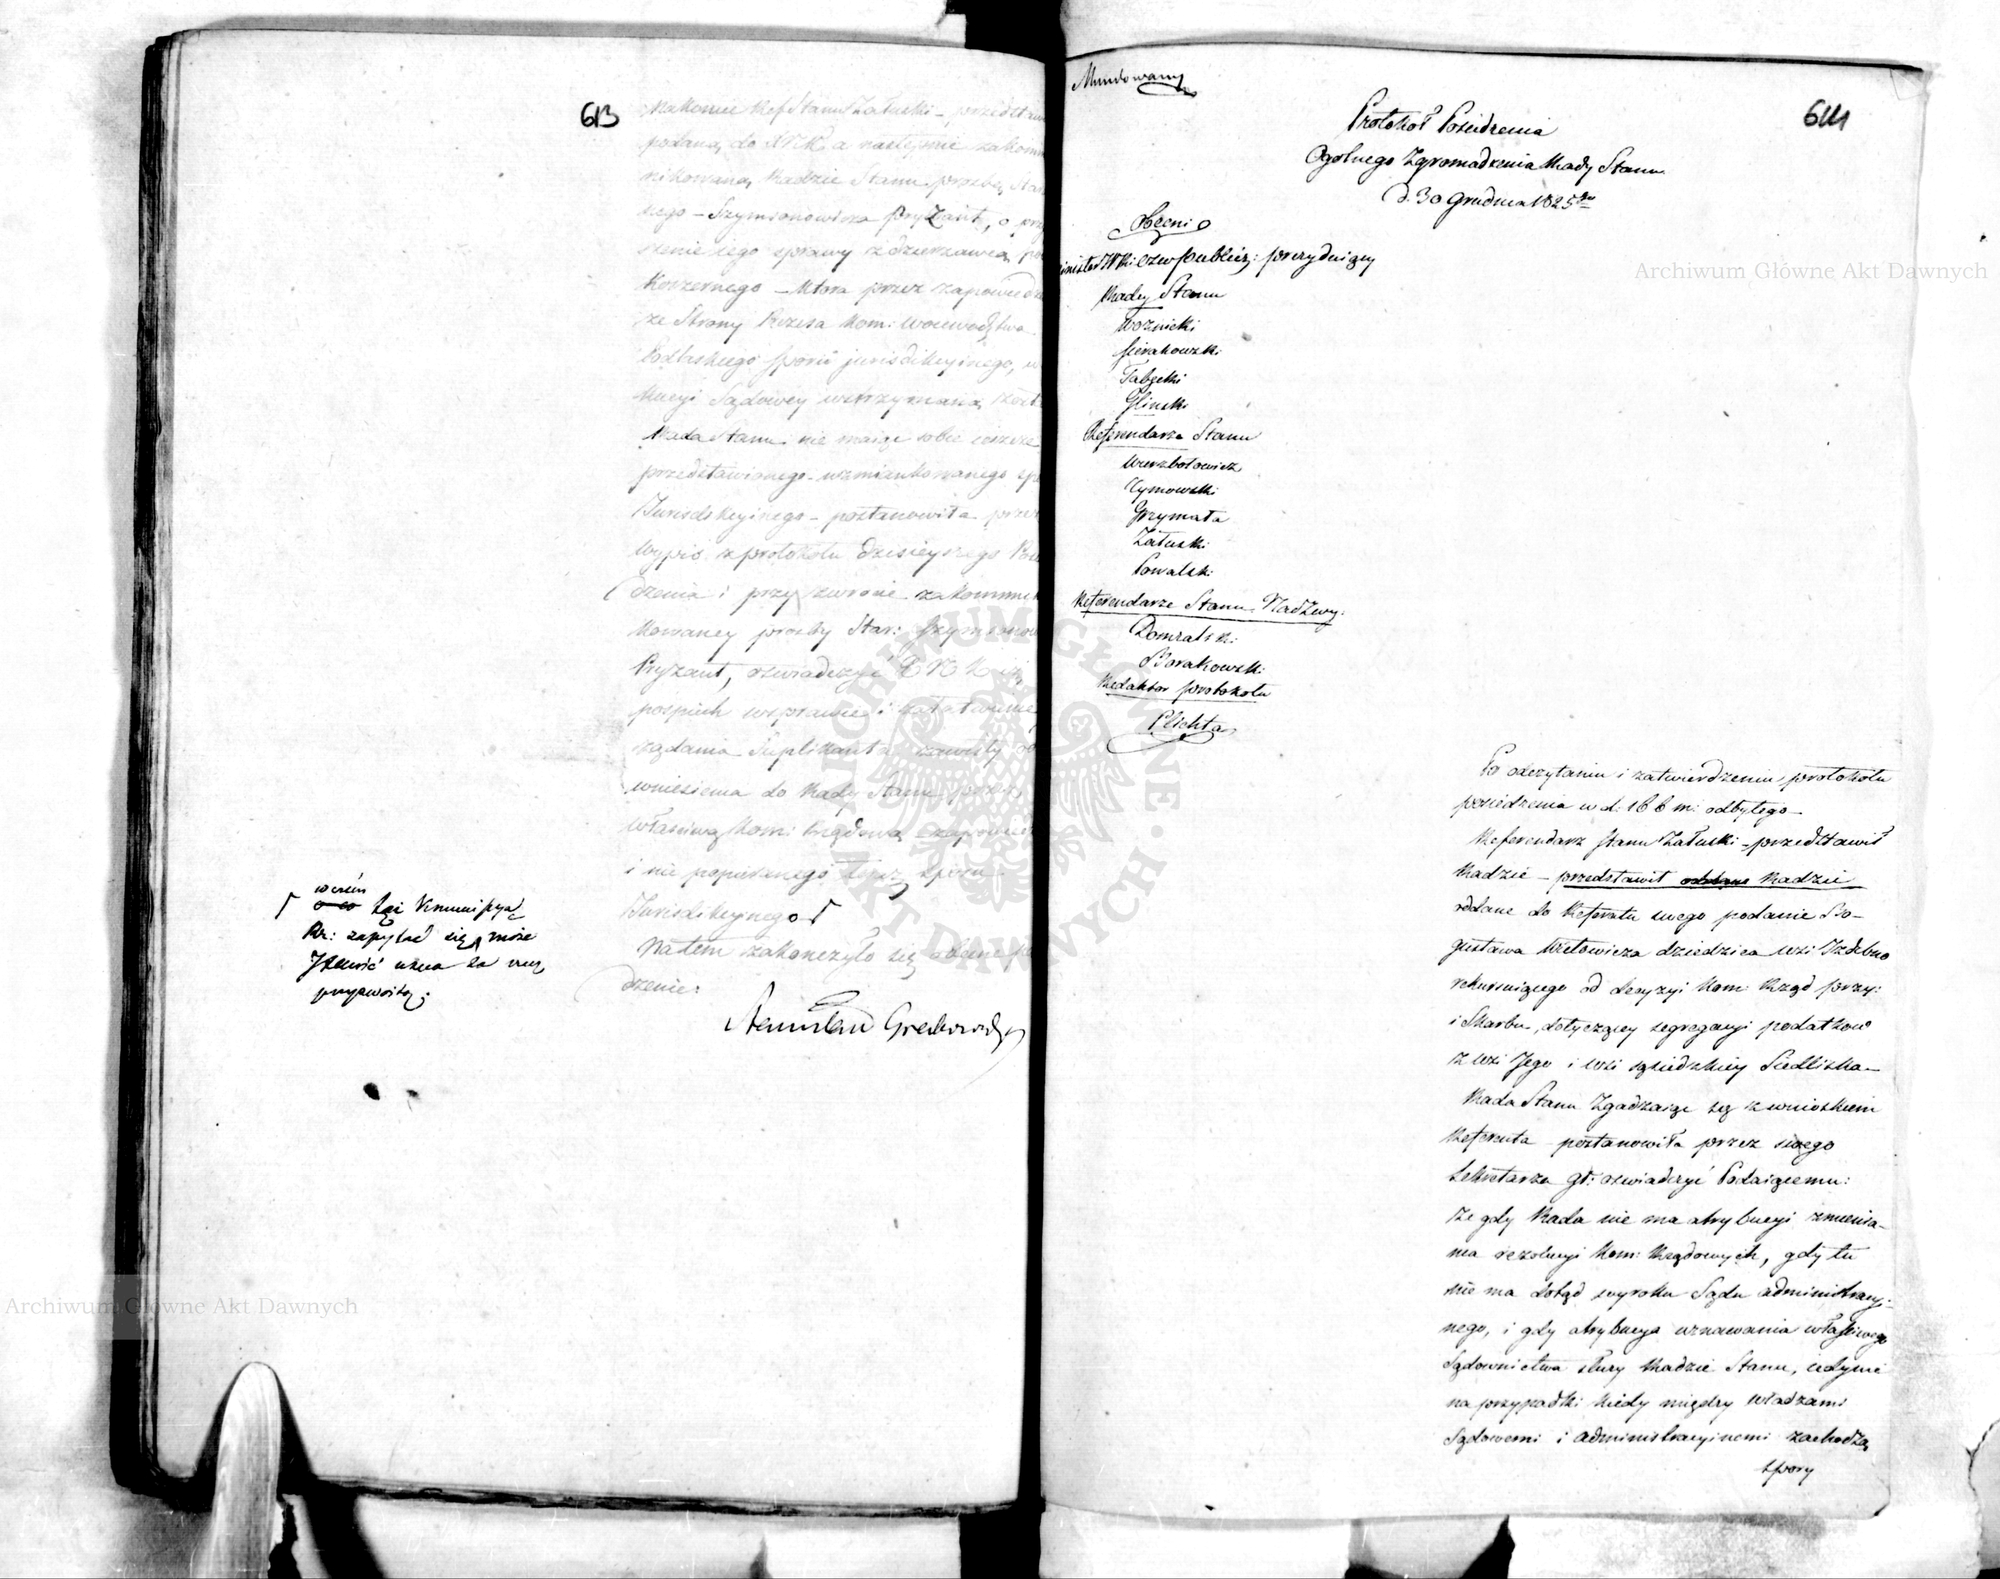 613
Nakoniec Ref Stanu Załuski – przedstaw
podaną do XNK, a następnie zakomm
nikowaną Radzie Stanu prozbę Sta
nego – Szymionowicza Pryzant, o przy
szenie iego sprawy z dzierzawcą
Koszernego – ktora przez zapowiedze
ze Strony Prezesa Kom: Woiewodztwa
Podlaskiego sporu jurisdikcyinego, w
kucyi Sądowey wstrzymaną zost
Rada Stanu nie maiąc sobie ieszcze
przedstawionego wzmiankowanego spo
Jurisdikcyinego – postanowiła przez
wypis z protokołu dzisieyszego Posie
dzenia i przy zwrocie zakommuni
kowaney prozby Star: Szymionow
Pryzant, oswiadczyć
pospiech w sprawie i załatwienie
żądania Suplikanta zawisły od
wniesienia do Rady Stanu przez
właściwą Kom: Rządową zapowied
i nie popieranego sporu
Jurisdikcyinego
Na tem zakonczyło się obecne po
dzenie:
Stanisław Grabowski
tęż Kommissyą
Rz: zapytać się może
przyzwoitą.
614
Mundowany
Protokoł Posiedzenia
Ogolnego Zgromadzenia Rady Stanu
d. 30 Grudnia 1825 go
Obecni
inister publicz: prezyduiący
Radcy Stanu
Woznicki
Sierakowski
Tabęcki
Glinski
Referendarze Stanu
Wierzbołowicz
Tymowski
Grzymała
Załuski
Kowalski
Referendarze Stanu Nadzwy:
Domzalski
Borakowski
Redaktor protokołu
Plichta
Po odczytaniu i zatwierdzeniu protokołu
posiedzenia w d. 16 b m: odbytego –
Referendarz Stanu Załuski – przedstawił
Radzie – przedstawił Radzie
oddane do Referatu swego podanie Bo-
gusława dziedzica wsi Izdebno
rekuruiącego od decyzyi Kom: Rząd przy:
i Skarbu, dotyczącey segregacyi podatkow
z wsi Jego i wsi sąsiedzkiey Siedliska –
Rada Stanu zgadzaiąc się z wnioskiem
Referenta postanowiła przez swego
Sekretarza Gł: oswiadczyć Podaiącemu:
że gdy Rada nie ma atrybucyi zmienia-
nia rezolucyi Kom: Rządowych, gdy tu
nie ma dotąd wyroku Sądu administracyi-
nego, i gdy atrybucya uznawania właściwego
Sądownictwa służy Radzie Stanu, iedynie
na przypadki kiedy między władzami
Sądowemi i administracyinemi zachodzą
spory
Archiwum Główne Akt Dawnych
Archiwum Główne Akt Dawnych
ARCHIWUM GŁÓWNE AKT DAWNYCH